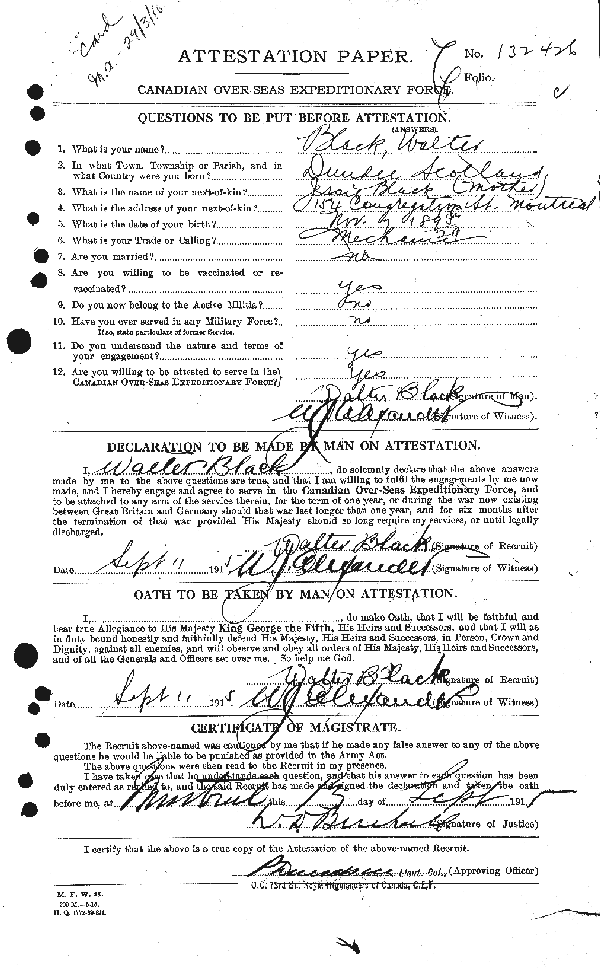 "Card"
M.D. 29/3/16
ATTESTATION PAPER.
No. 132426
Folio.
CANADIAN OVER-SEAS EXPEDITIONARY FORCE.
QUESTIONS TO BE PUT BEFORE ATTESTATION.
(ANSWERS)
1. What is your name? Black, Walter
2. In what Town, Township or Parish, and in
what Country were you born? Dundee Scotland
3. What is the name of your next-of-kin? Jessie Black (Mother)
4. What is the address of your next-of-kin? 154 Congregation St. Montreal
5. What is the date of your birth? Nov 9 1895
6. What is your Trade or Calling? Mechanic
7. Are you married? no
8. Are you willing to be vaccinated or re-
vaccinated? Yes
9. Do you now belong to the Active Militia? no
10. Have you ever served in any Military Force? no
If so, state particulars of former Service.
11. Do you understand the nature and terms of
your engagement? yes
12. Are you willing to be attested to serve in the
CANADIAN OVER-SEAS EXPEDITIONARY FORCE? Yes
Walter Black (Signature of Man).
W J Alexander (Signature of Witness).
DECLARATION TO BE MADE BY MAN ON ATTESTATION.
I, Walter Black, do solemnly declare that the above answers
made by me to the above questions are true, and that I am willing to fulfil the engagements by me now
made, and I hereby engage and agree to serve in the Canadian Over-Seas Expeditionary Force, and
to be attached to any arm of the service therein, for the term of one year, or during the war now existing
between Great Britain and Germany should that war last longer than one year, and for six months after
the termination of that war provided His Majesty should so long require my services, or until legally
discharged.
Walter Black (Signature of Recruit)
Date Sept 11 1915 W J Alexander (Signature of Witness)
OATH TO BE TAKEN BY MAN ON ATTESTATION.
I, do make Oath, that I will be faithful and
bear true Allegiance to His Majesty King George the Fifth, His Heirs and Successors, and that I will as
in duty bound honestly and faithfully defend His Majesty, His Heirs and Successors, in Person, Crown and
Dignity, against all enemies, and will observe and obey all orders of His Majesty, His Heirs and Successors,
and of all the Generals and Officers set over me. So help me God.
Walter Black (Signature of Recruit)
Date Sept 11 1915 W J Alexander (Signature of Witness)
CERTIFICATE OF MAGISTRATE.
The Recruit above-named was cautioned by me that if he made any false answer to any of the above
questions he would be liable to be punished as provided in the Army Act.
The above questions were then read to the Recruit in my presence.
I have taken care that he understands each question, and that his answer to each question has been
duly entered as replied to, and the said Recruit has made and signed the declaration and taken the oath
before me, at Montreal this day of Sept 1915
(Signature of Justice)
I certify that the above is a true copy of the Attestation of the above-named Recruit.
Lieut. Col., (Approving Officer)
O.C. 73rd Bn. Royal Highlanders of Canada, C.E.F.
M. F. W. 23.
H. Q. 1772-39-241.